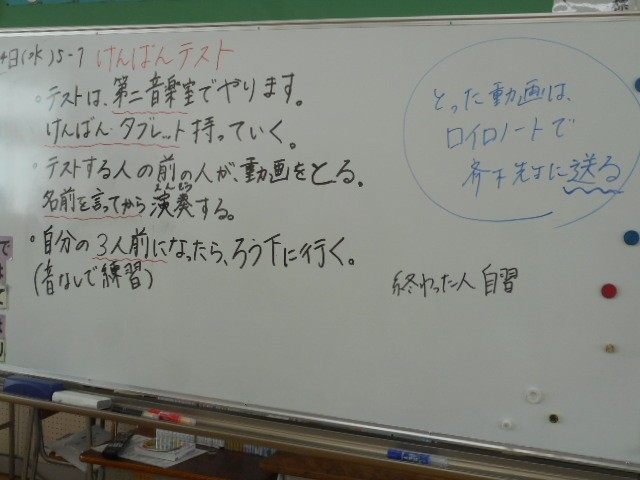 4日(水)5-1 けんばんテスト
・テストは、第二音楽室でやります。
けんばん・タブレット持っていく。
・テストする人の前の人が、動画をとる。
えんそう
名前を言ってから演奏する。
・自分の3人前になったら、ろう下に行く。
(音なしで練習)
とった動画は、
ロイロノートで
先生に送る
終わった人 自習